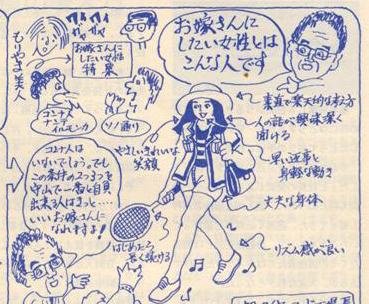 もりやま美人
ガヤ
ガヤ
お嫁さんに
したい女性
特集
コンナ人
ナンテ
イルモンカ
ソノ通り
お嫁さんに
したい女性とは
こんな人です
素直で楽天的な考え方
人の話が興味深く
聞ける
やさしいきれいな
笑顔
早い返事と
身軽な動き
丈夫な身体
リズム感が良い
コンナ人は
いないでしょう。でも
この条件のうち3つを
守山で一番と自負
出来る人はきっと…
いいお嫁さんに
なれますよ!
はじめたら
長く続ける